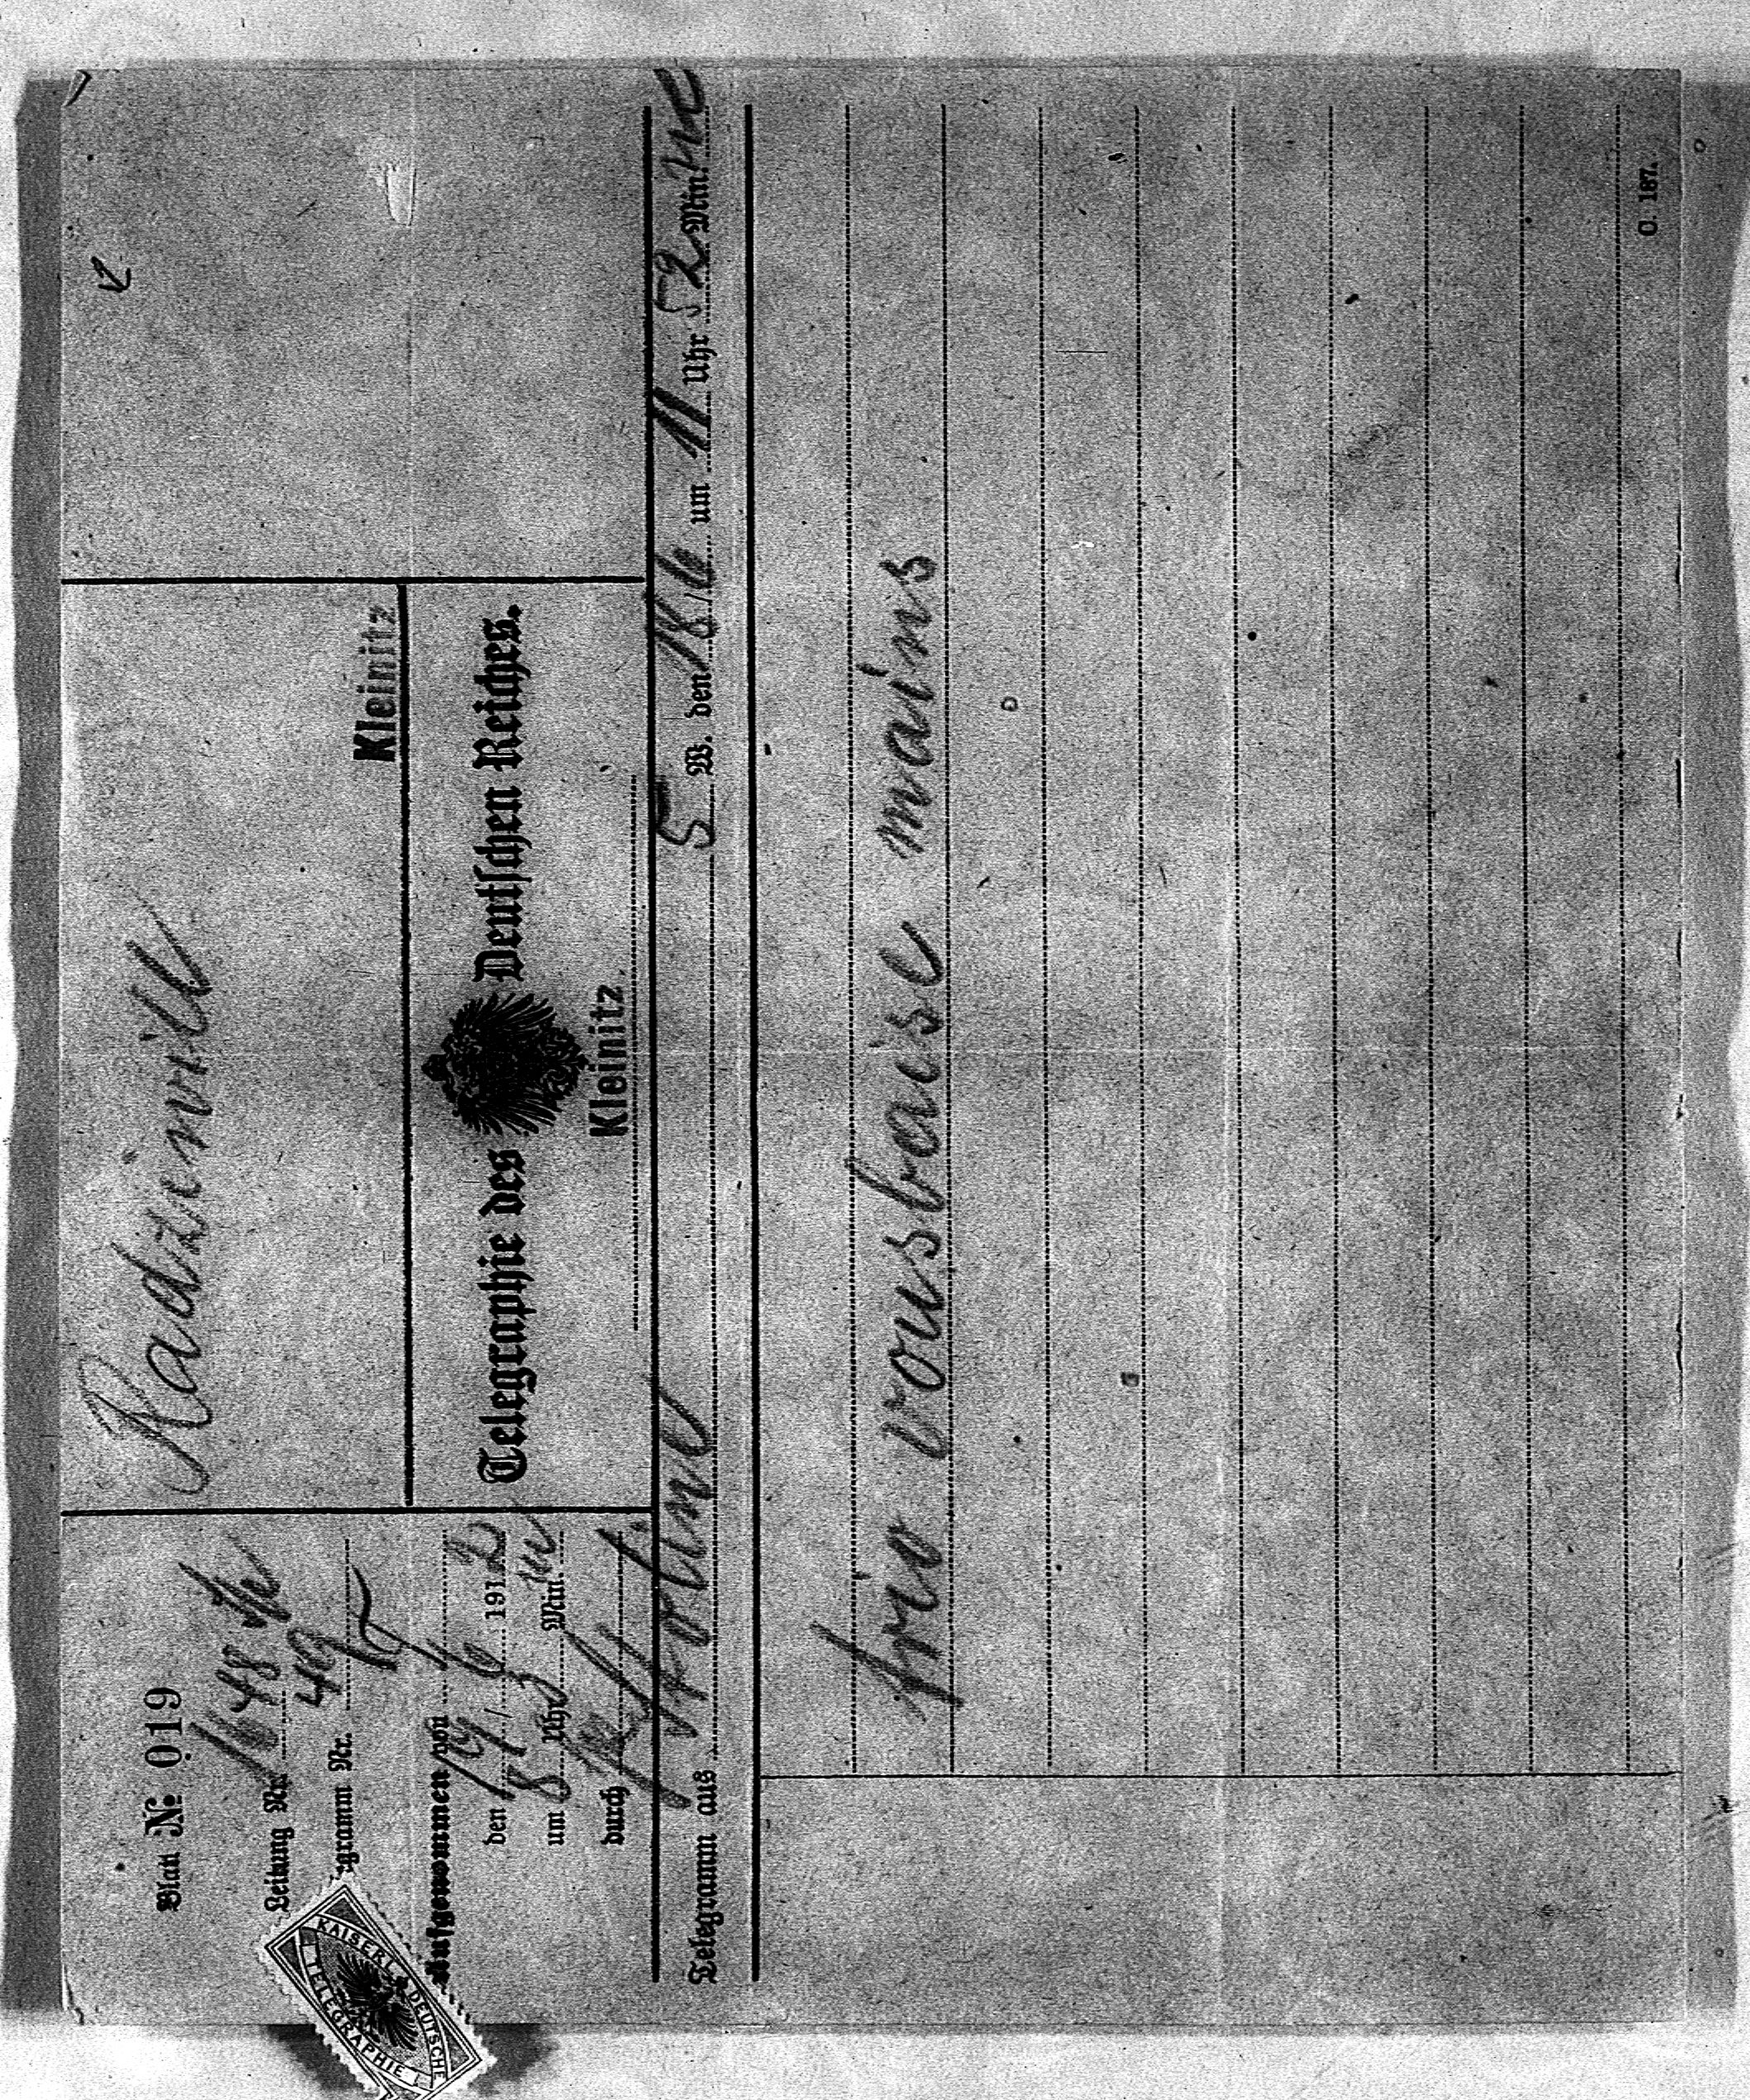 Blatt № 019
Leitung Nr. 1648
Telegramm Nr. 49
Aufgenommen von
den 19/6 1912
um 8 Uhr Min.
durch
Radzinvill
Kleinitz
Telegraphie des Deutschen Reiches.
Kleinitz.
Telegramm aus Stoline 5 W. den 18/6 um 11 Uhr 52 Min.
frio vousbaise mains
O. 187.
KAISERL. DEUTSCHE
TELEGRAPHIE